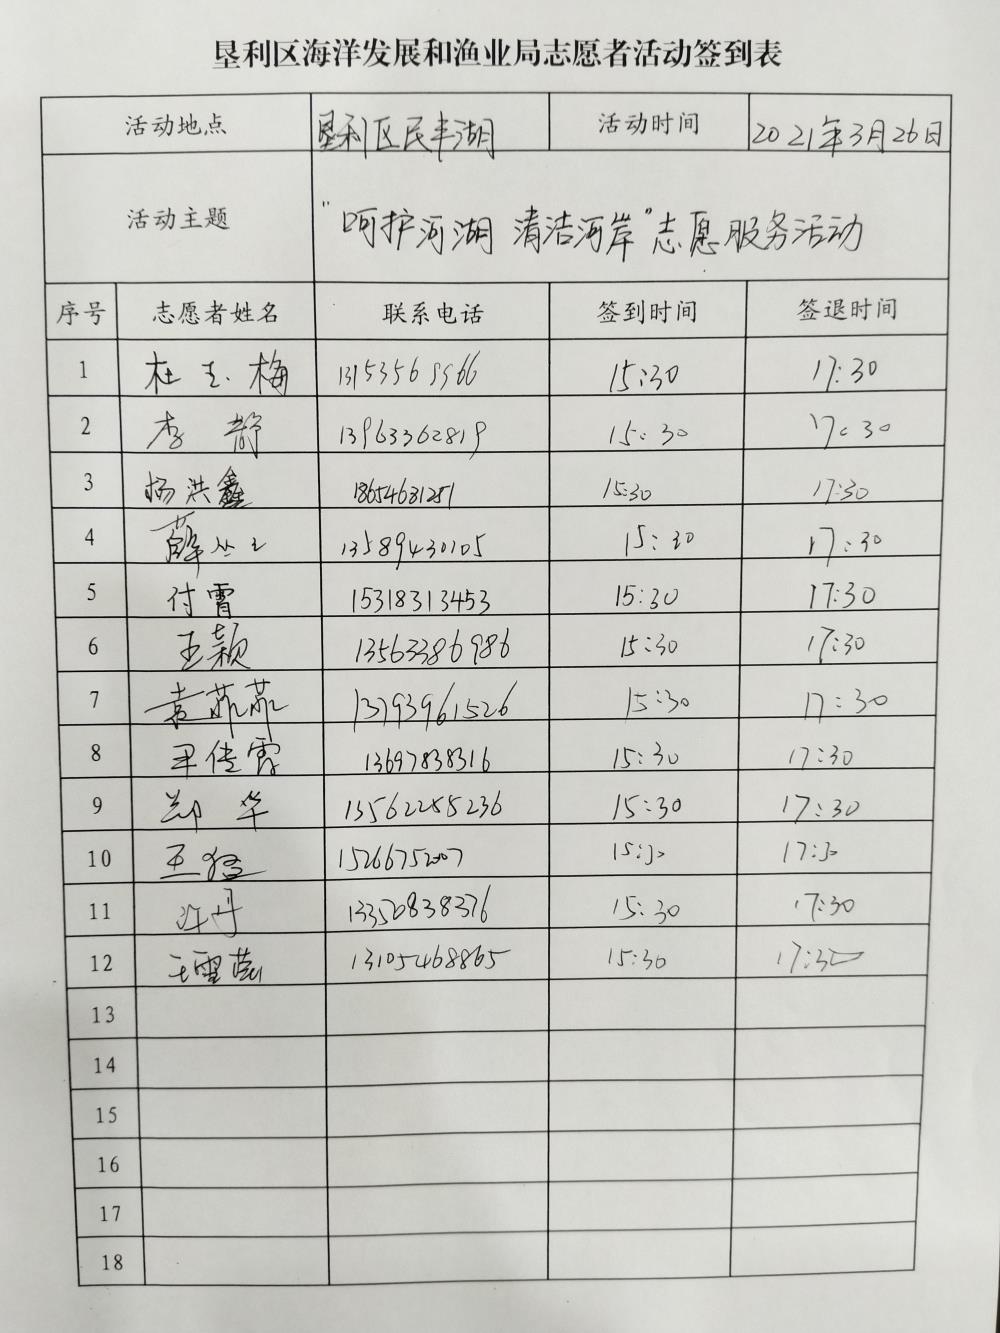 垦利区海洋发展和渔业局志愿者活动签到表
活动地点 垦利区民丰湖 活动时间 2021年3月26日
活动主题 "呵护河湖 清洁河岸"志愿服务活动
序号 志愿者姓名 联系电话 签到时间 签退时间
1 杜 梅 15:30 17:30
2 李静 13963362819 15:30 17:30
3 杨洪鑫 18654631251 15:30 17:30
4 薛 13589430105 15:30 17:30
5 付霄 15318313453 15:30 17:30
6 王颖 13563386986 15:30 17:30
7 袁菲菲 13793961526 15:30 17:30
8 尹传霞 13697838316 15:30 17:30
9 郑华 13562288236 15:30 17:30
10 王 15266752007 15:30 17:30
11 许丹 13350838376 15:30 17:30
12 王雪燕 13105468865 15:30 17:30
13
14
15
16
17
18